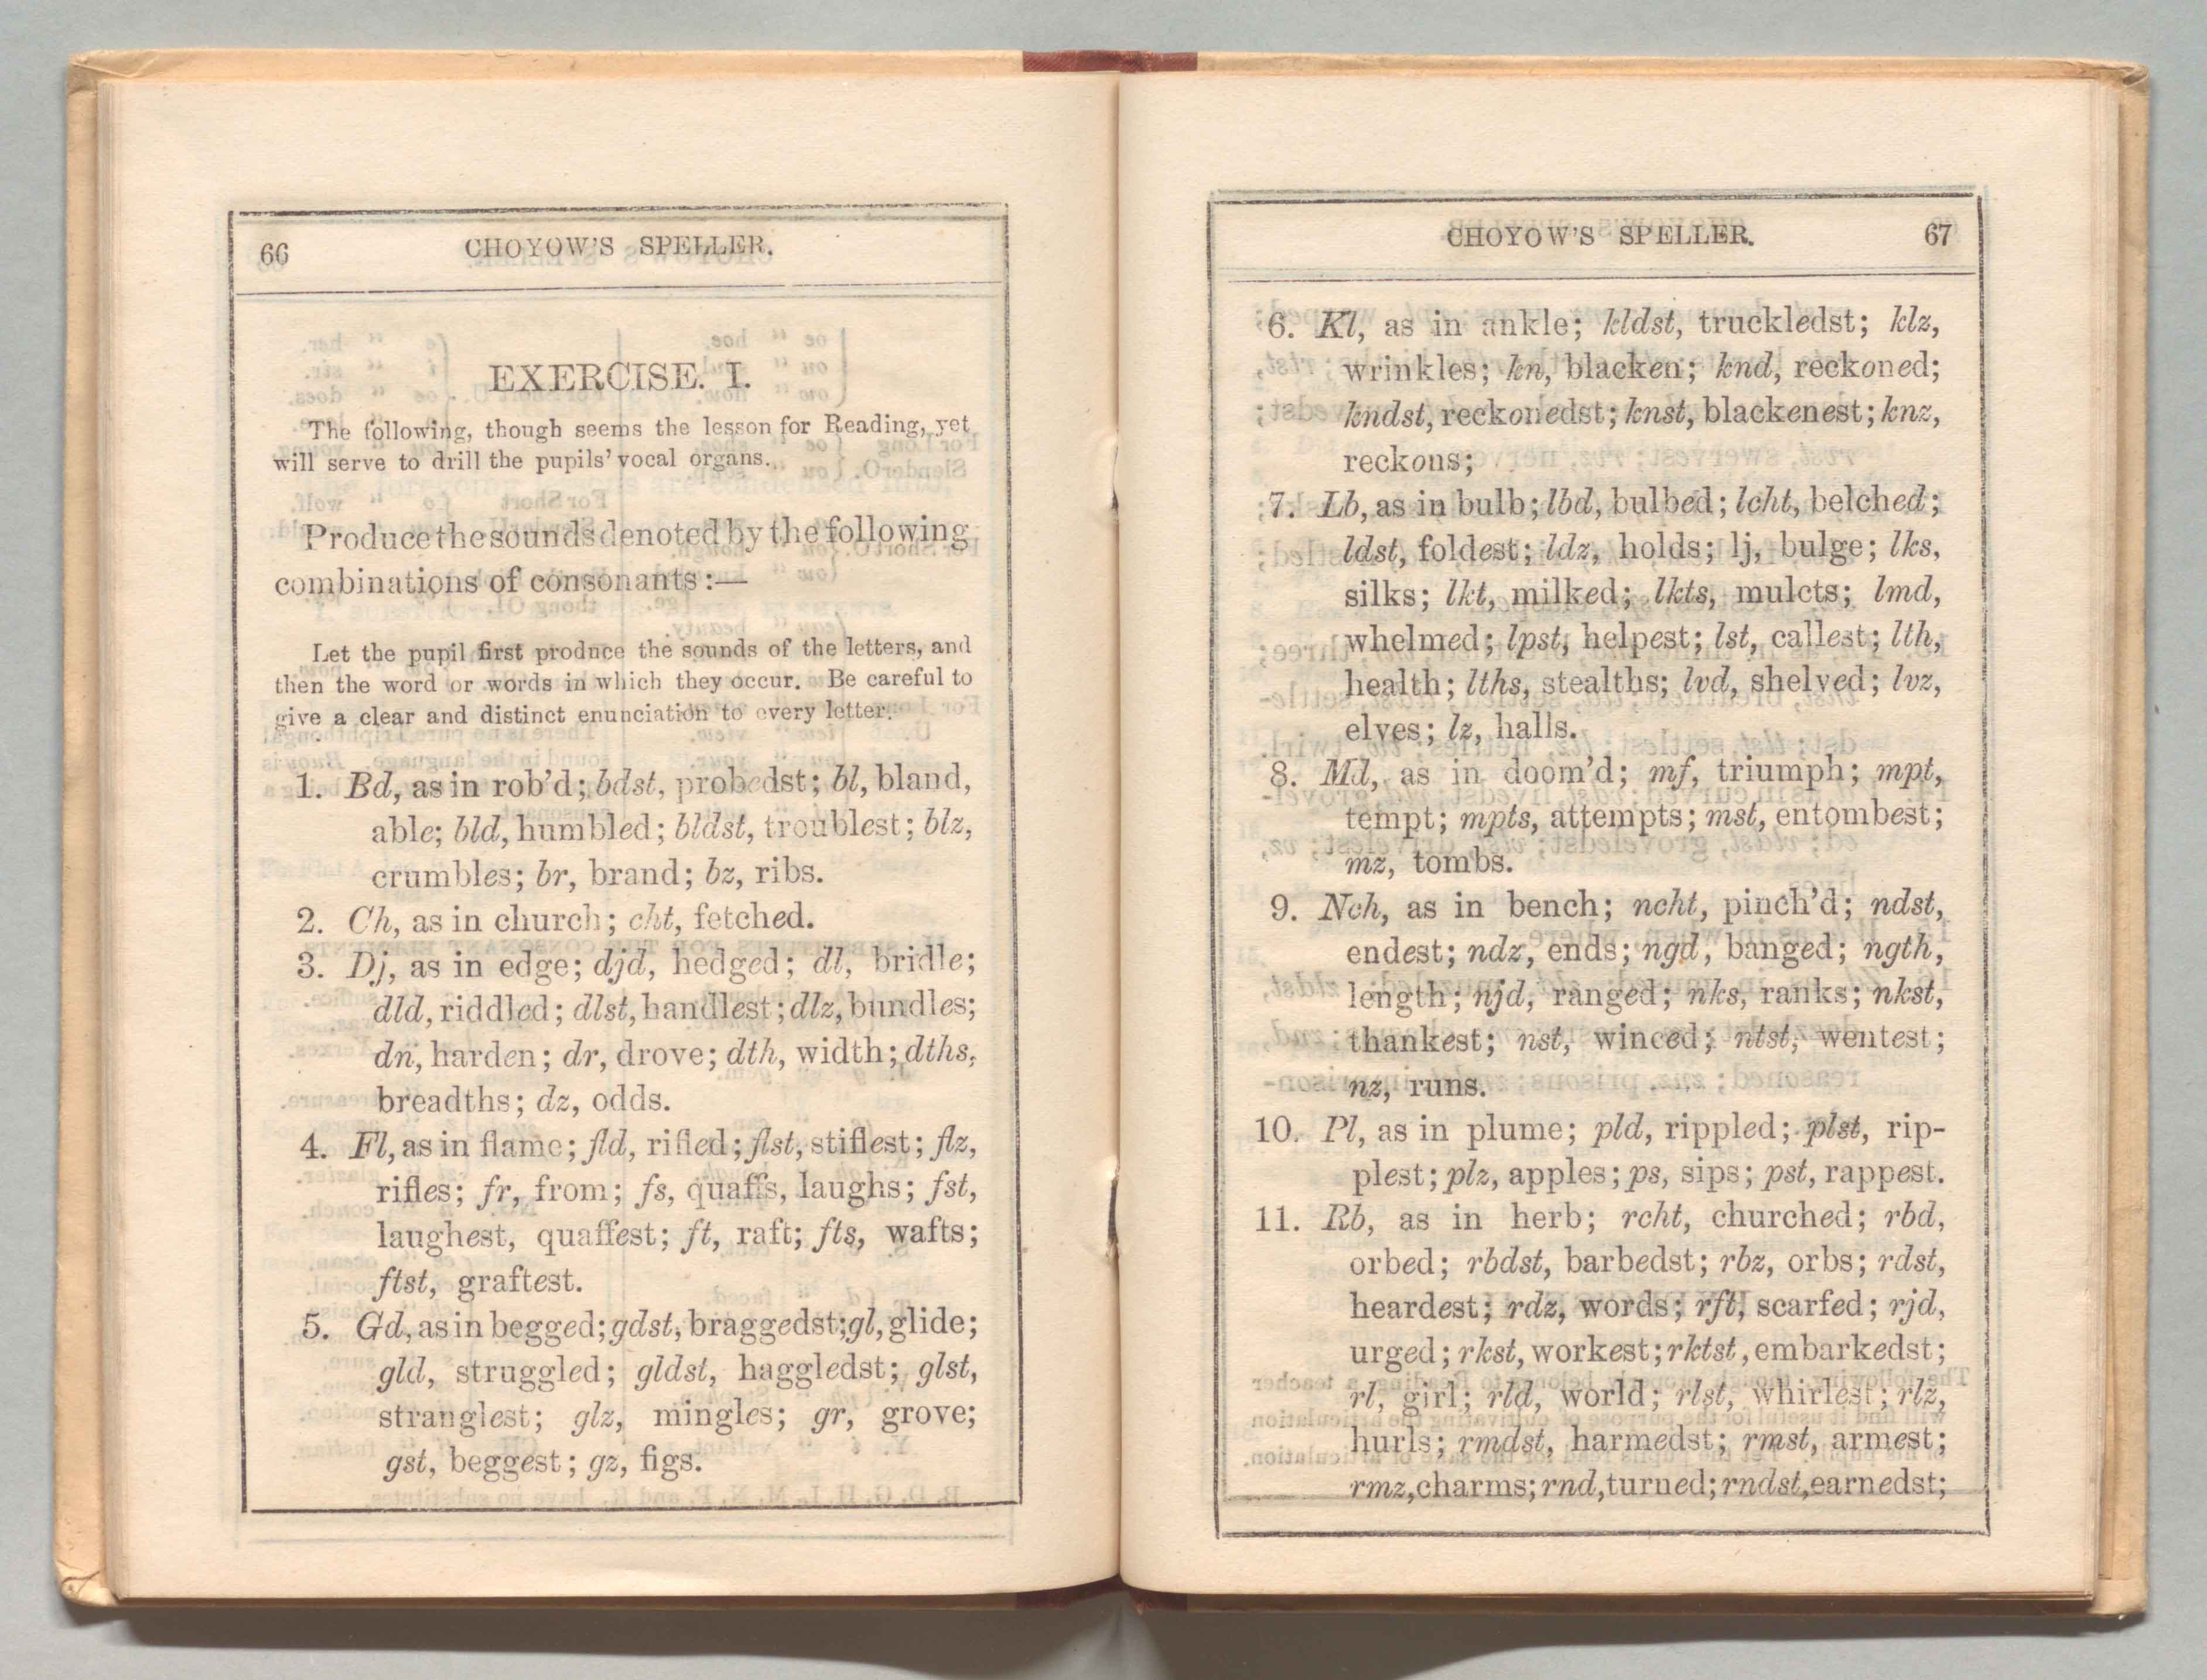 66 CHOYOW'S SPELLER.
EXERCISE. I.
The following, though seems the lesson for Reading, yet
will serve to drill the pupils' vocal organs.
Produce the sounds denoted by the following
combinations of consonants :—
Let the pupil first produce the sounds of the letters, and
then the word or words in which they occur. Be careful to
give a clear and distinct enunciation to every letter.
1. Bd, as in rob'd; bdst, probedst; bl, bland,
able; bld, humbled; bldst, troublest; blz,
crumbles; br, brand; bz, ribs.
2. Ch, as in church; cht, fetched.
3. Dj, as in edge; djd, hedged; dl, bridle;
dld, riddled; dlst, handlest; dlz, bundles;
dn, harden; dr, drove; dth, width; dths,
breadths; dz, odds.
4. Fl, as in flame; fld, rifled; flst, stiflest; flz,
rifles; fr, from; fs, quaffs, laughs; fst,
laughest, quaffest; ft, raft; fts, wafts;
ftst, graftest.
5. Gd, as in begged; gdst, braggedst; gl, glide;
gld, struggled; gldst, haggledst; glst,
stranglest; glz, mingles; gr, grove;
gst, beggest; gz, figs.
CHOYOW'S SPELLER. 67
6. Kl, as in ankle; kldst, truckledst; klz,
wrinkles; kn, blacken; knd, reckoned;
kndst, reckonedst; knst, blackenest; knz,
reckons;
7. Lb, as in bulb; lbd, bulbed; lcht, belched;
ldst, foldest; ldz, holds; lj, bulge; lks,
silks; lkt, milked; lkts, mulcts; lmd,
whelmed; lpst, helpest; lst, callest; lth,
health; lths, stealths; lvd, shelved; lvz,
elves; lz, halls.
8. Md, as in doom'd; mf, triumph; mpt,
tempt; mpts, attempts; mst, entombest;
mz, tombs.
9. Nch, as in bench; ncht, pinch'd; ndst,
endest; ndz, ends; ngd, banged; ngth,
length; njd, ranged; nks, ranks; nkst,
thankest; nst, winced; ntst, wentest;
nz, runs.
10. Pl, as in plume; pld, rippled; plst, rip-
plest; plz, apples; ps, sips; pst, rappest.
11. Rb, as in herb; rcht, churched; rbd,
orbed; rbdst, barbedst; rbz, orbs; rdst,
heardest; rdz, words; rft, scarfed; rjd,
urged; rkst, workest; rktst, embarkedst;
rl, girl; rld, world; rlst, whirlest; rlz,
hurls; rmdst, harmedst; rmst, armest;
rmz, charms; rnd, turned; rndst, earnedst;